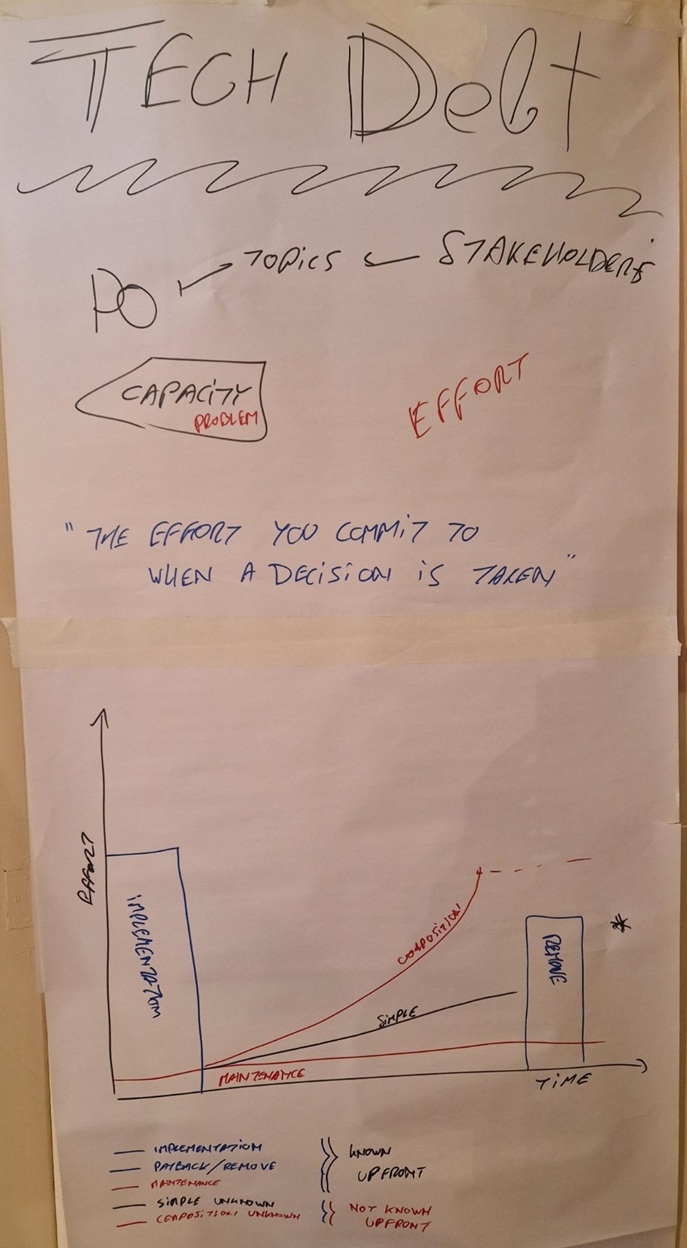 TECH Debt
PO TOPICS STAKEHOLDERS
CAPACITY
PROBLEM
EFFORT
"THE EFFORT YOU COMMIT TO
WHEN A DECISION IS TAKEN"
EFFORT
IMPLEMENTATION
COMPOSITION
SIMPLE
MAINTENANCE
REMOVE
*
TIME
IMPLEMENTATION
PAYBACK/REMOVE
MAINTENANCE
KNOWN
UPFRONT
SIMPLE UNKNOWN
COMPOSITION UNKNOWN
NOT KNOWN
UPFRONT